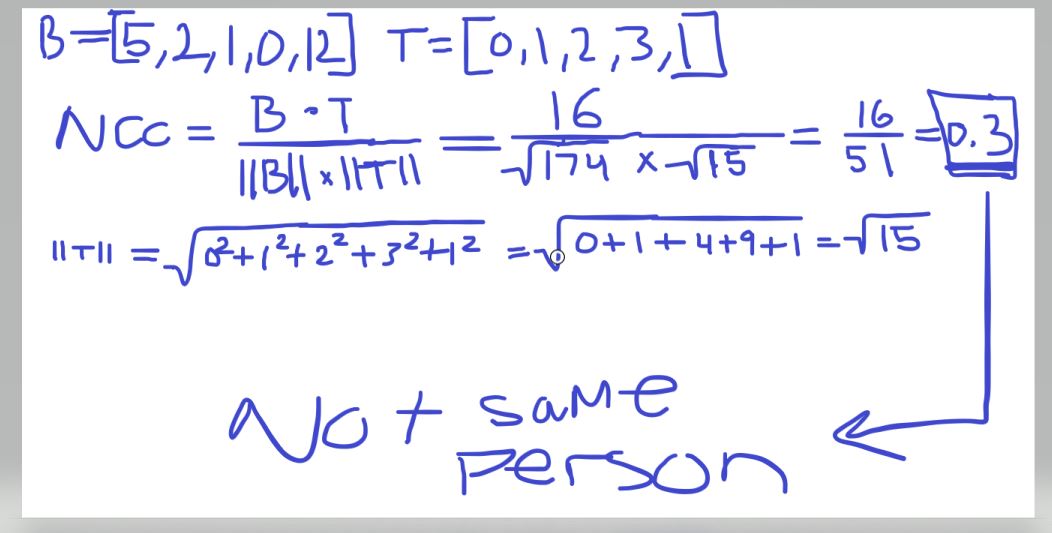 B=[5,2,1,0,12] T=[0,1,2,3,1]
NCC = B·T / ||B|| × ||T|| = 16 / √174 × √15 = 16/51 = 0.3
||T|| = √0²+1²+2²+3²+1² = √0+1+4+9+1 = √15
Not same
person